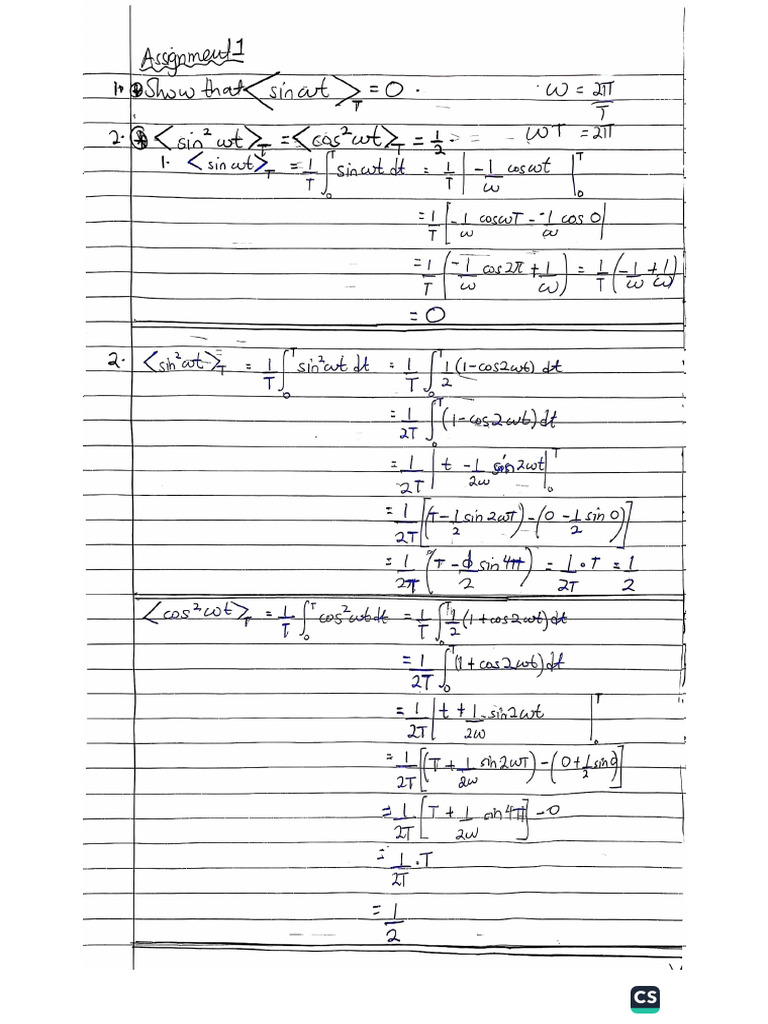 Assignment 1
1. Show that <sin ωt>_T = 0. ω = 2π/T
2. <sin²ωt>_T = <cos²ωt>_T = 1/2. ωT = 2π
1. <sin ωt>_T = 1/T ∫₀ᵀ sin ωt dt = 1/T |-1/ω cos ωt|₀ᵀ
= 1/T |-1/ω cos ωT - -1/ω cos 0|
= 1/T (-1/ω cos 2π + 1/ω) = 1/T (-1/ω + 1/ω)
= 0
2. <sin²ωt>_T = 1/T ∫₀ᵀ sin²ωt dt = 1/T ∫₀ᵀ 1/2 (1-cos2ωt) dt
= 1/2T ∫₀ᵀ (1-cos2ωt) dt
= 1/2T |t - 1/2ω sin2ωt|₀ᵀ
= 1/2T [(T - 1/2 sin 2ωT) - (0 - 1/2 sin 0)]
= 1/2π (T - 1/2 sin 4π) = 1/2T · T = 1/2
<cos²ωt>_T = 1/T ∫₀ᵀ cos²ωt dt = 1/T ∫₀ᵀ 1/2 (1+cos2ωt) dt
= 1/2T ∫₀ᵀ (1+cos2ωt) dt
= 1/2T |t + 1/2ω sin2ωt|₀ᵀ
= 1/2T [(T + 1/2ω sin2ωT) - (0 + 1/2 sin 0)]
= 1/2T [T + 1/2ω sin 4π] - 0
= 1/2T · T
= 1/2
CS